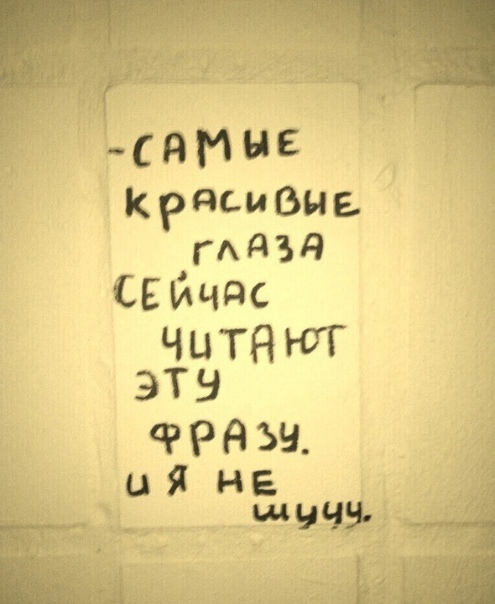 -САМЫЕ
КРАСИВЫЕ
ГЛАЗА
СЕЙЧАС
ЧИТАЮТ
ЭТУ
ФРАЗУ.
И Я НЕ
шучу.